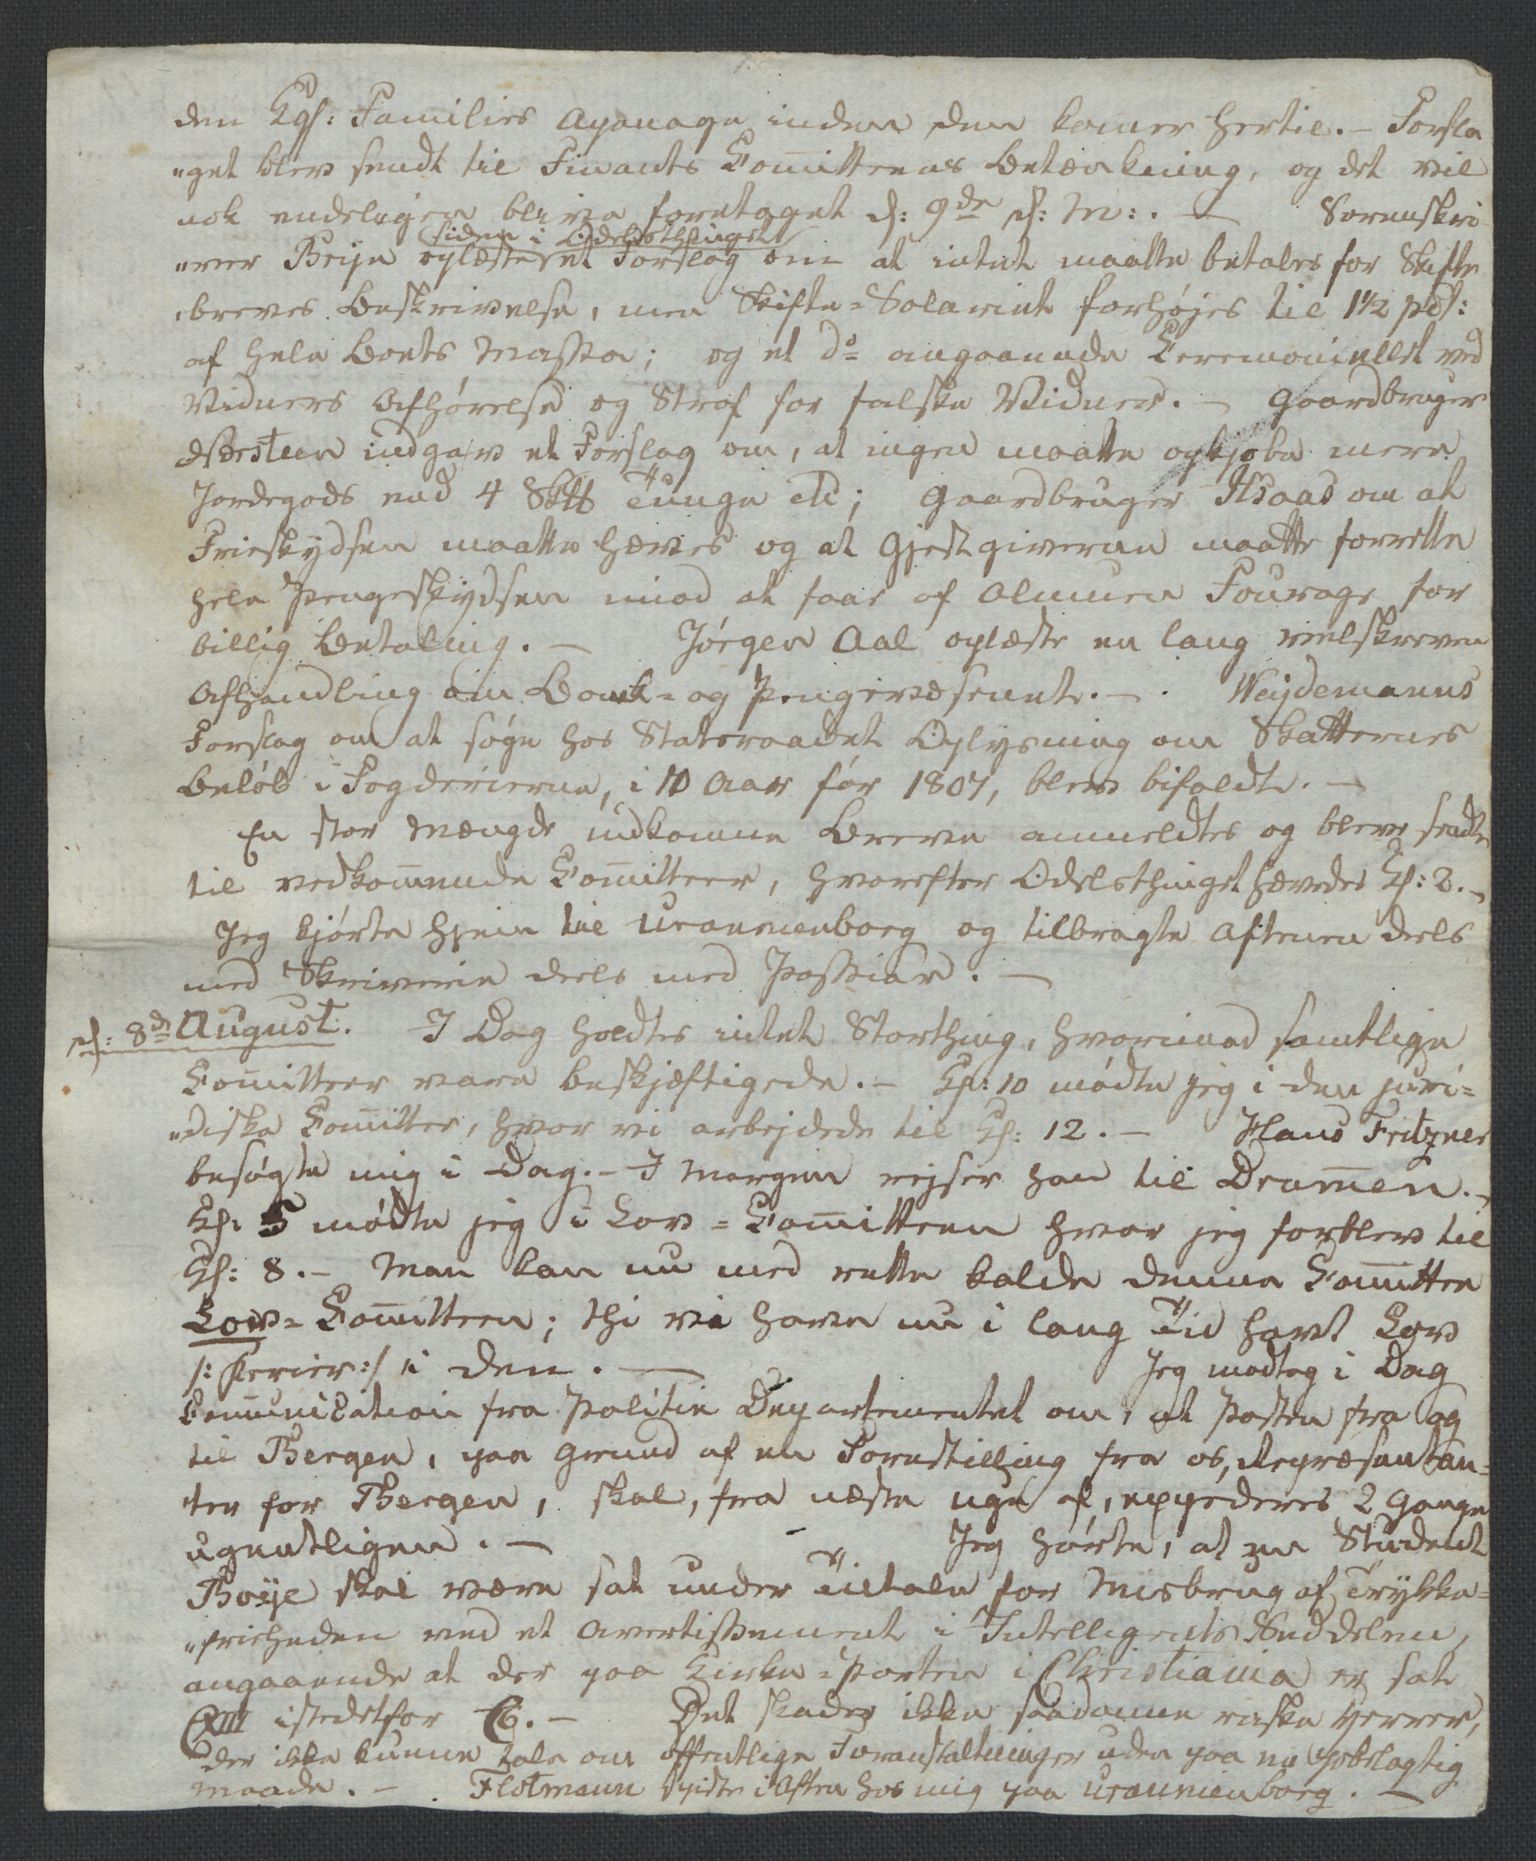 den Kgl: Families Apanage inden den komer hertil. – Forsla
"get blev sendt til Finants Comitteens Betænkning, og det vil
nok endeligen blive foretaget d: 9de d: M:. – Sorenskri
siden i Odelsthinget
"ver Brije oplæste et Forslag om at intet maatte betales for Skifte
"breves Beskrivelse, men Skifte-Solariet forhøjes til 1½ pCt:
af hele Boets Masse; og et do angaaende Ceremoniellet ved
Vidners Afhørelse og Straf for falske Vidner. – Gaardbruger
indgav et Forslag om, at ingen maatte opkjøbe mere
Jordegods end 4 Skt Tunge etc; Gaardbruger om at
Frieskydsen maatte hæves og at Gjestgiverne maatte forrette
hele Pengeskydsen imod at faae af Almuen Fourage for
billig Betaling. – Jørgen Aal oplæste en lang velskreven
Afhandling om Bank- og Pengevæsenet. – . Weydemanns
Forslag om at søge hos Statsraadet Oplysning om Skatternes
Beløb i Fogderierne, i 10 Aar før 1807, blev bifaldt. –
En stor Mængde indkomne Breve anmeldtes og bleve sendte
til vedkommende Comitteer, hvorefter Odelsthinget hævedes Kl: 2. –
Jeg kjørte hjem til Uranienborg og tilbragte Aftenen deels
med Skriverie deels med Passiar. –
d: 8de August. I Dag holdtes intet Storthing, hvorimod samtlige
Comitteer vare beskjæftigede. – Kl: 10 mødte jeg i den juri-
"diske Comittee, hvor vi arbejdede til Kl: 12. – Hans Fritzner
besøgte mig i Dag. – I Morgen rejser han til Dramen. –
Kl. 5 mødte jeg i Lov-Comitteen hvor jeg forblev til
Kl: 8. – Man kan nu med rette kalde denne Comittee
Lov-Comitteen; thi vi have nu i lang Tid havt Lov
/: Ferier :/ i den. – Jeg modtog i Dag
Communication fra Politie Departementet om, at Posten fra og
til Bergen, paa Grund af en Forestilling fra os, Repræsentan-
"ter for Bergen, skal, fra næste Uge af, expederes 2 Gange
ugentligen. – Jeg hørte, at en Student
Boije skal være sat under Tiltale for Misbrug af Trykke-
"friheden ved et Avertissement i Intelligents Seddelen,
angaaende at der paa Kirke-Porten i Christiania er sat
CXIII istedetfor C6. – Det skader ikke saadanne raske Herrer,
der ikke kunne tale om offentlige Foranstaltninger uden paa en pøbelagtig
Maade. – Flotmann spiste i Aften hos mig paa Uranienborg. –